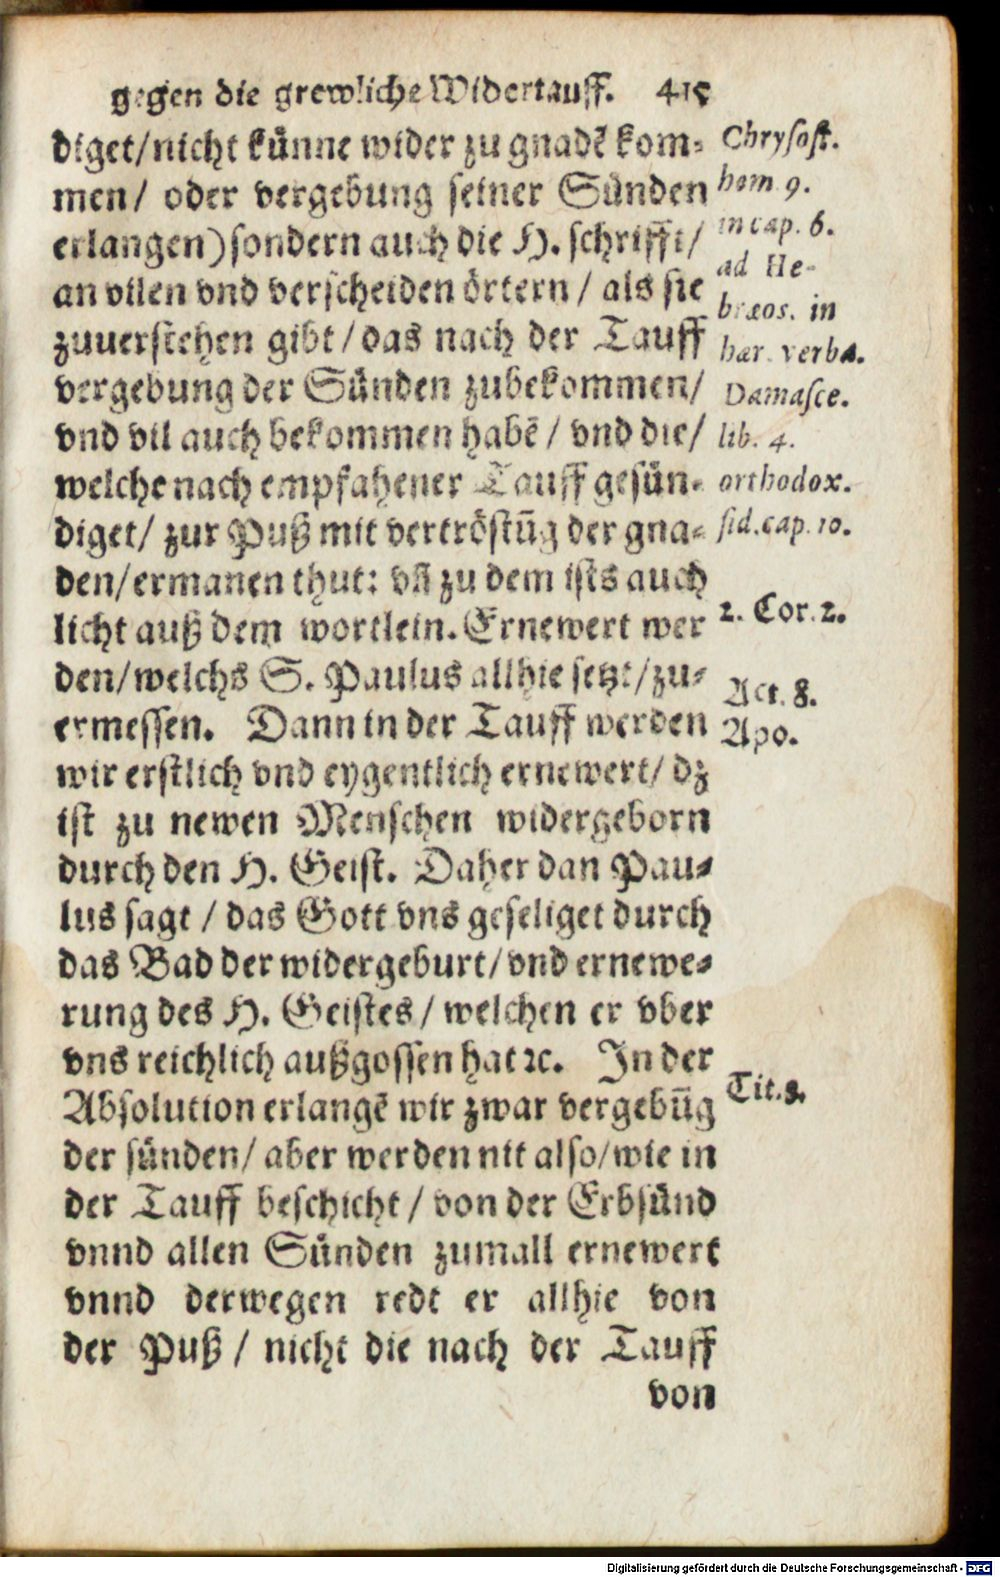 gegen die grewliche Widertauff. 415
diget/nicht künne wider zu gnadẽ kom-
men/ oder vergebung seiner Sünden
erlangen)sondern auch die H. schrifft/
an vilen vnd verscheiden örtern / als sie
zuuerstehen gibt / das nach der Tauff
vergebung der Sünden zubekommen/
vnd vil auch bekommen habẽ / vnd die/
welche nach empfahener Tauff gesün-
diget/ zur Puß mit vertröstũg der gna-
den/ermanen thut: vñ zu dem ists auch
licht auß dem wortlein. Ernewert wer
den/welchs S. Paulus allhie setzt/zu-
ermessen. Dann in der Tauff werden
wir erstlich vnd eygentlich ernewert/ dz
ist zu newen Menschen widergeborn
durch den H. Geist. Daher dan Pau-
lus sagt / das Gott vns geseliget durch
das Bad der widergeburt/vnd ernewe-
rung des H. Geistes / welchen er vber
vns reichlich außgossen hat ꝛc. In der
Absolution erlangẽ wir zwar vergebũg
der sünden/ aber werden nit also/wie in
der Tauff beschicht / von der Erbsünd
vnnd allen Sünden zumall ernewert
vnnd derwegen redt er allhie von
der Puß / nicht die nach der Tauff
von
Chrysost.
hom 9.
in cap. 6.
ad He-
bræos. in
hæc verba.
Damasce.
lib. 4.
orthodox.
fid. cap. 10.
2. Cor. 2.
Act. 8.
Apo.
Tit. 3.
Digitalisierung gefördert durch die Deutsche Forschungsgemeinschaft - DFG